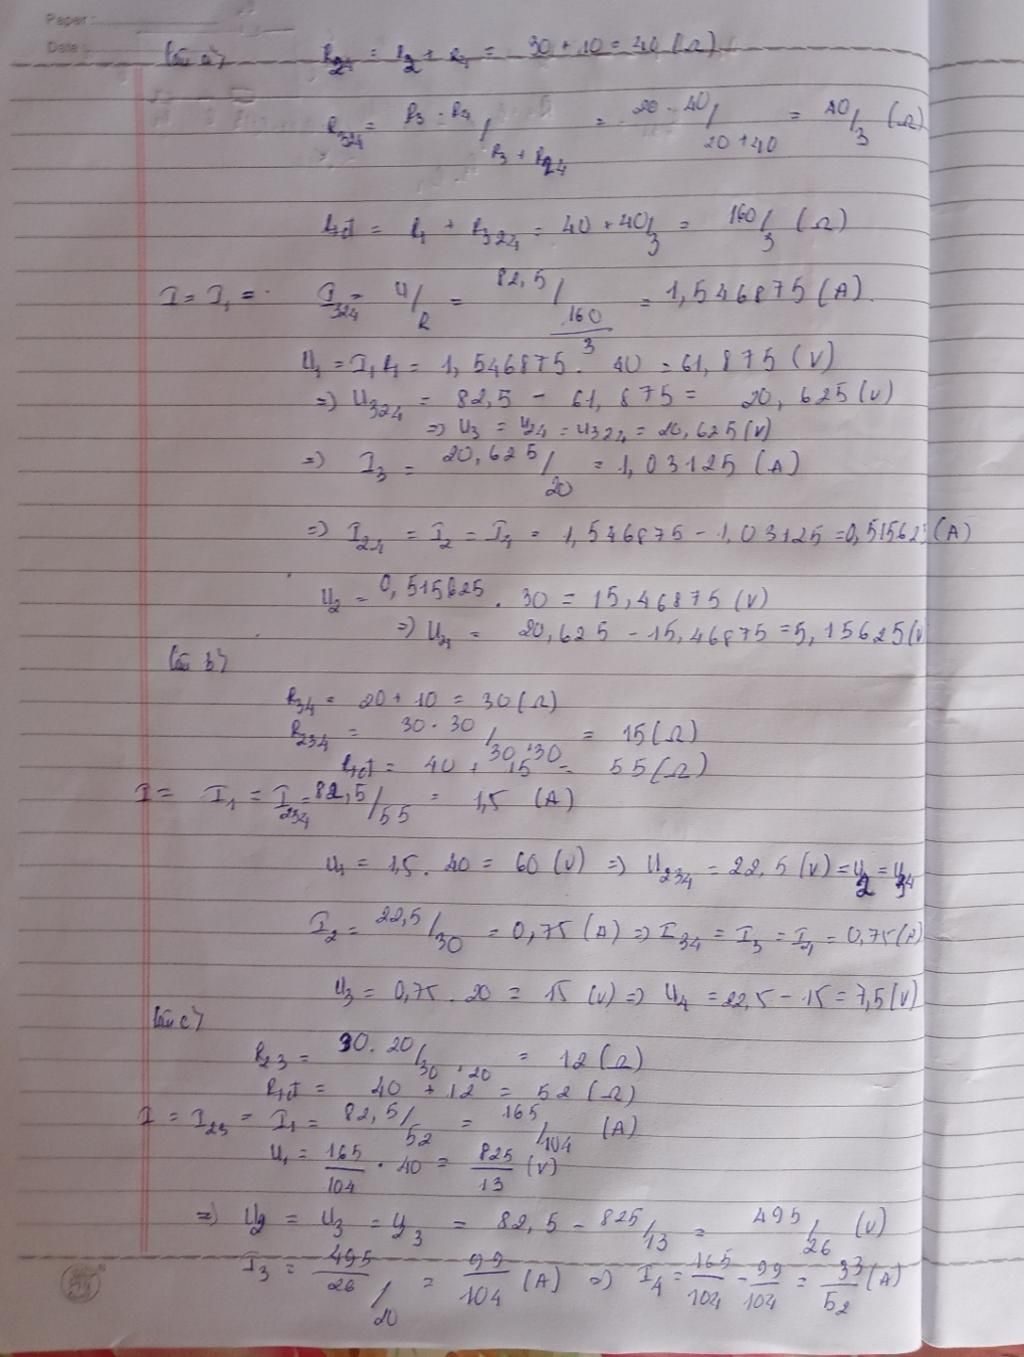 Paper :
Date :
Câu a) R24 = R2 + R4 = 30 + 10 = 40 (Ω)
R324 = R3 . R4 / R3 + R24 = 20 . 40 / 20 + 40 = 40/3 (Ω)
Rtđ = R1 + R324 = 40 + 40/3 = 160/3 (Ω)
I = I1 = I324 = U/R = 82,5 / 160/3 = 1,546875 (A).
U1 = I1 R1 = 1,546875 . 40 = 61,875 (V)
=> U324 = 82,5 - 61,875 = 20,625 (V)
=> U3 = U24 = U324 = 20,625 (V)
=> I3 = 20,625 / 20 = 1,03125 (A)
=> I24 = I2 = I4 = 1,546875 - 1,03125 = 0,515625 (A)
U2 = 0,515625 . 30 = 15,46875 (V)
=> U4 = 20,625 - 15,46875 = 5,15625 (V
Câu b)
R34 = 20 + 10 = 30 (Ω)
R234 = 30 . 30 / 30 + 30 = 15 (Ω)
Rtđ = 40 + 15 = 55 (Ω)
I = I1 = I234 = 82,5 / 55 = 1,5 (A)
U1 = 1,5 . 40 = 60 (V) => U234 = 22,5 (V) = U2 = U34
I2 = 22,5 / 30 = 0,75 (A) => I34 = I3 = I4 = 0,75 (A)
U3 = 0,75 . 20 = 15 (V) => U4 = 22,5 - 15 = 7,5 (V)
Câu c)
R23 = 30 . 20 / 30 + 20 = 12 (Ω)
Rtđ = 40 + 12 = 52 (Ω)
I = I23 = I1 = 82,5 / 52 = 165 / 104 (A)
U1 = 165/104 . 40 = 825/13 (V)
=> U2 = U3 = U23 = 82,5 - 825/13 = 495/26 (V)
I3 = 495/26 / 20 = 99/104 (A) => I4 = 165/104 - 99/104 = 33/52 (A)